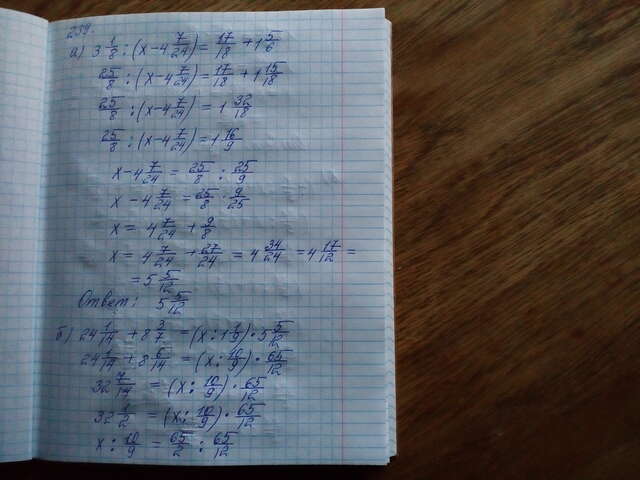 239.
а) 3 1/8 : (x - 4 7/24) = 17/18 + 1 5/6
25/8 : (x - 4 7/24) = 17/18 + 1 15/18
25/8 : (x - 4 7/24) = 1 32/18
25/8 : (x - 4 7/24) = 1 16/9
x - 4 7/24 = 25/8 : 25/9
x - 4 7/24 = 25/8 · 9/25
x = 4 7/24 + 9/8
x = 4 7/24 + 27/24 = 4 34/24 = 4 17/12 =
= 5 5/12
Ответ: 5 5/12
б) 24 1/14 + 8 3/7 = (x : 1 1/9) · 5 5/12
24 1/14 + 8 6/14 = (x : 10/9) · 65/12
32 7/14 = (x : 10/9) · 65/12
32 1/2 = (x : 10/9) · 65/12
x : 10/9 = 65/2 : 65/12